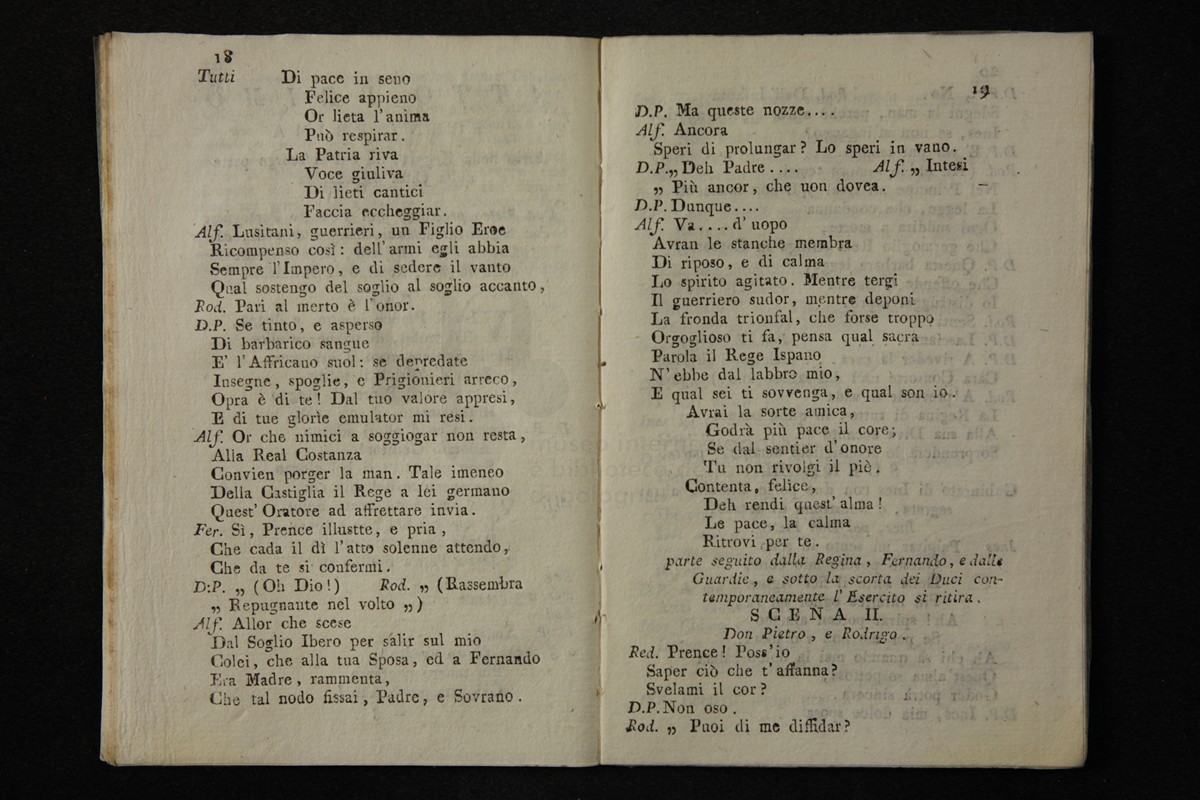 18
Tutti Di pace in seno
Felice appieno
Or lieta l'anima
Può respirar.
La Patria riva
Voce giuliva
Di lieti cantici
Faccia eccheggiar.
Alf. Lusitani, guerrieri, un Figlio Eroe
Ricompenso così: dell'armi egli abbia
Sempre l'Impero, e di sedere il vanto
Qual sostengo del soglio al soglio accanto,
Rod. Pari al merto è l'onor.
D.P. Se tinto, e asperso
Di barbarico sangue
E' l'Affricano suol: se depredate
Insegne, spoglie, e Prigionieri arreco,
Opra è di te! Dal tuo valore appresi,
E di tue glorie emulator mi resi.
Alf. Or che nimici a soggiogar non resta,
Alla Real Costanza
Convien porger la man. Tale imeneo
Della Castiglia il Rege a lei germano
Quest'Oratore ad affrettare invia.
Fer. Sì, Prence illustte, e pria,
Che cada il dì l'atto solenne attendo,
Che da te si confermi.
D:P. „ (Oh Dio!) Rod. „ (Rassembra
„ Repugnante nel volto „)
Alf. Allor che scese
Dal Soglio Ibero per salir sul mio
Colei, che alla tua Sposa, ed a Fernando
Era Madre, rammenta,
Che tal nodo fissai, Padre, e Sovrano.
19
D.P. Ma queste nozze....
Alf. Ancora
Speri di prolungar? Lo speri in vano.
D.P.„ Deh Padre.... Alf. „ Intesi
„ Più ancor, che uon dovea.
D.P. Dunque....
Alf. Va....d'uopo
Avran le stanche membra
Di riposo, e di calma
Lo spirito agitato. Mentre tergi
Il guerriero sudor, mentre deponi
La fronda trionfal, che forse troppo
Orgoglioso ti fa, pensa qual sacra
Parola il Rege Ispano
N'ebbe dal labbro mio,
E qual sei ti sovvenga, e qual son io.
Avrai la sorte amica,
Godrà più pace il core;
Se dal sentier d'onore
Tu non rivolgi il piè.
Contenta, felice,
Deh rendi quest'alma!
Le pace, la calma
Ritrovi per te.
parte seguito dalla Regina, Fernando, e dalle
Guardie, e sotto la scorta dei Duci con-
temporaneamente l'Esercito si ritira.
SCENA II.
Don Pietro, e Rodrigo.
Red. Prence! Poss'io
Saper ciò che t'affanna?
Svelami il cor?
D.P. Non oso.
Rod. „ Puoi di me diffidar?